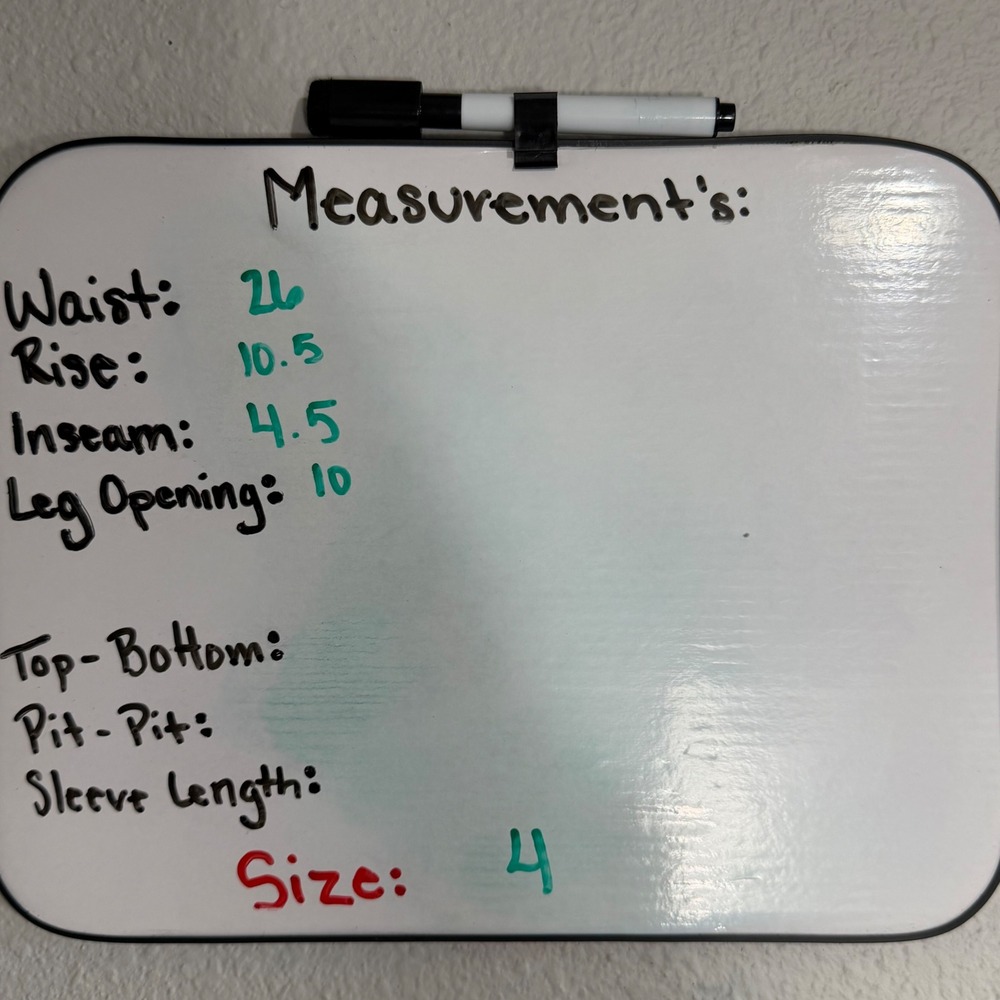 Measurement's:
Waist: 26
Rise: 10.5
Inseam: 4.5
Leg Opening: 10
Top-Bottom:
Pit-Pit:
Sleeve Length:
Size: 4